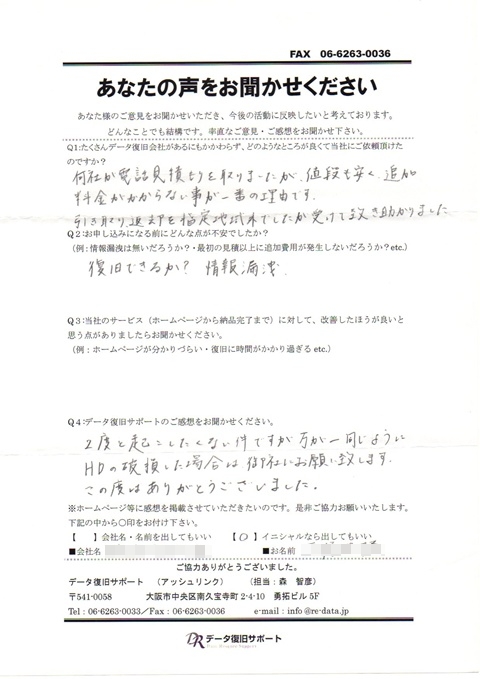 FAX 06-6263-0036
あなたの声をお聞かせください
あなた様のご意見をお聞かせいただき、今後の活動に反映したいと考えております。
どんなことでも結構です。率直なご意見・ご感想をお聞かせ下さい。
Q1:たくさんデータ復旧会社があるにもかかわらず、どのようなところが良くて当社にご依頼頂けた
のですか？
何社か電話見積もりを取りましたが、値段も安く、追加
料金がかからない事が一番の理由です。
引き取り返却を指定地域外でしたが受けて頂き助かりました
Q2:お申し込みになる前にどんな点が不安でしたか？
(例:情報漏洩は無いだろうか？・最初の見積以上に追加費用が発生しないだろうか？etc.)
復旧できるか？ 情報漏洩。
Q3:当社のサービス（ホームページから納品完了まで）に対して、改善したほうが良いと
思う点がありましたらお聞かせください。
(例：ホームページが分かりづらい・復旧に時間がかかり過ぎる etc.)
Q4:データ復旧サポートのご感想をお聞かせください。
2度と起こしたくない件ですが万が一同じように
HDの破損した場合は御社にお願い致します。
この度はありがとうございました。
※ホームページ等に感想を掲載させていただきたいのです。是非ご協力お願いいたします。
下記の中から〇印をお付け下さい。
【 】会社名・名前を出してもいい 【〇】イニシャルなら出してもいい
■会社名 ■お名前
ご協力ありがとうございました。
データ復旧サポート （アッシュリンク） （担当：森 智彦）
〒541-0058 大阪市中央区南久宝寺町 2-4-10 勇拓ビル 5F
Tel：06-6263-0033／Fax：06-6263-0036 e-mail：info@re-data.jp
DR データ復旧サポート